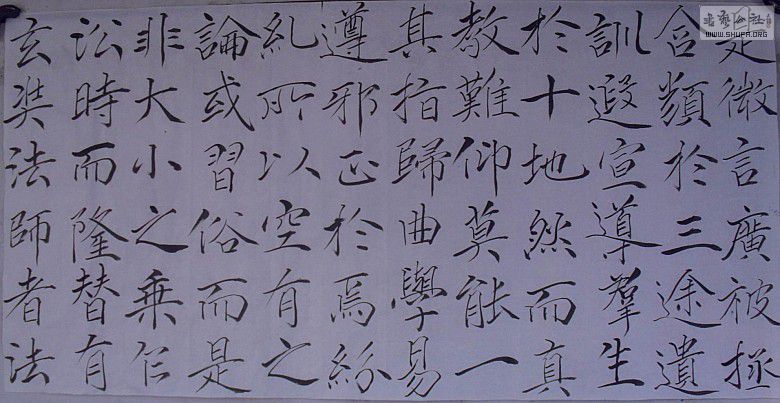 是微言廣被拯
含類於三途遺
訓遐宣導羣生
於十地然而真
教難仰莫能一
其指歸曲學易
遵邪正於焉紛
糺所以空有之
論或習俗而是
非大小之乘乍
㳂時而隆替有
玄奘法師者法
书艺公社
WWW.SHUFA.ORG